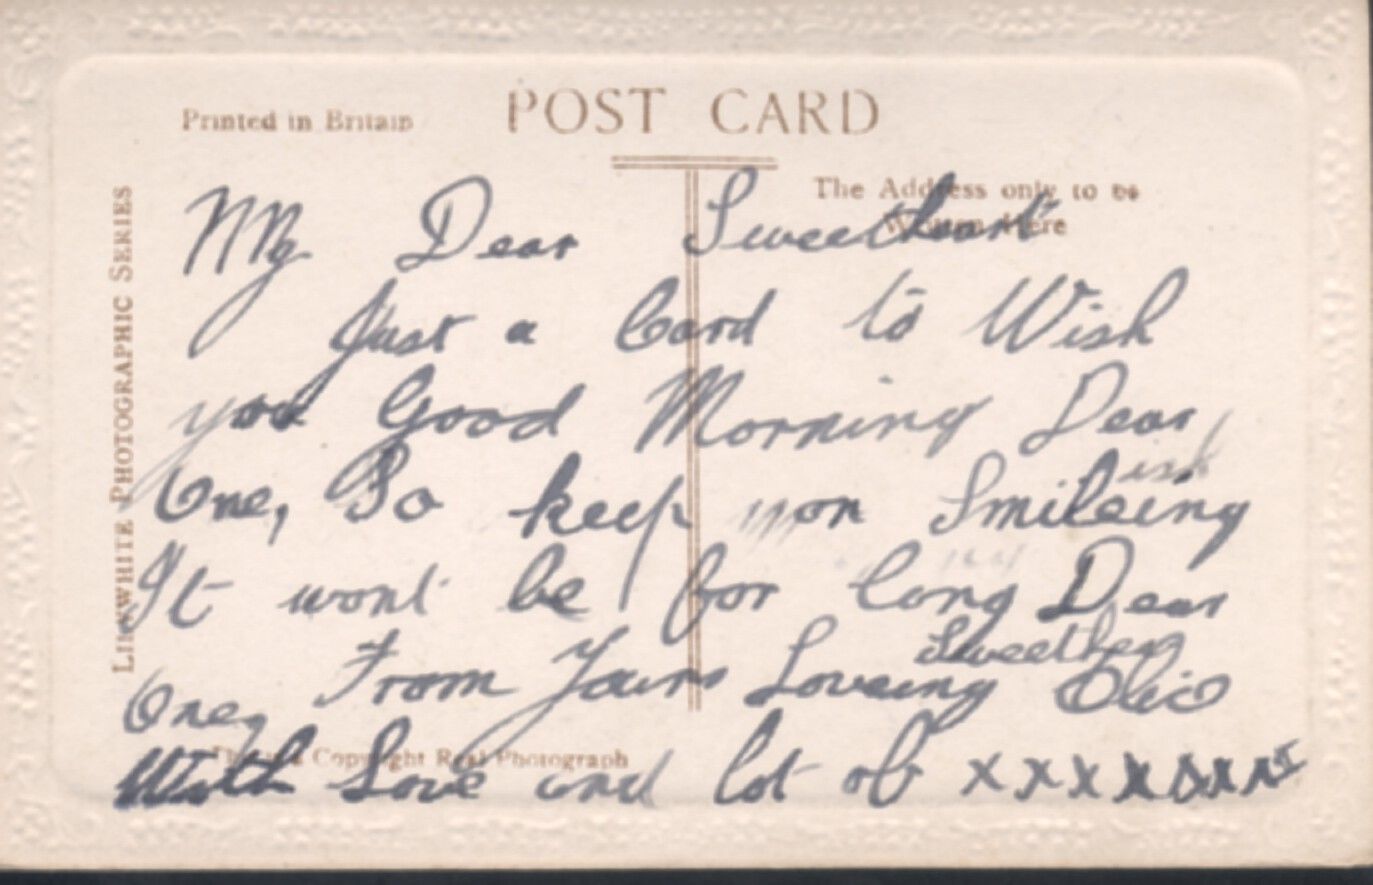 POST CARD
Printed in Britain
The Address only to be
Written Here
LILYWHITE PHOTOGRAPHIC SERIES
My Dear Sweetheart
Just a Card to Wish
you Good Morning Dear
One, So keep on Smileing
It wont be for long Dear
One, From Yours Loveing Sweethea
With Love and lot of x x x x x x x
This is a Copyright Real Photograph